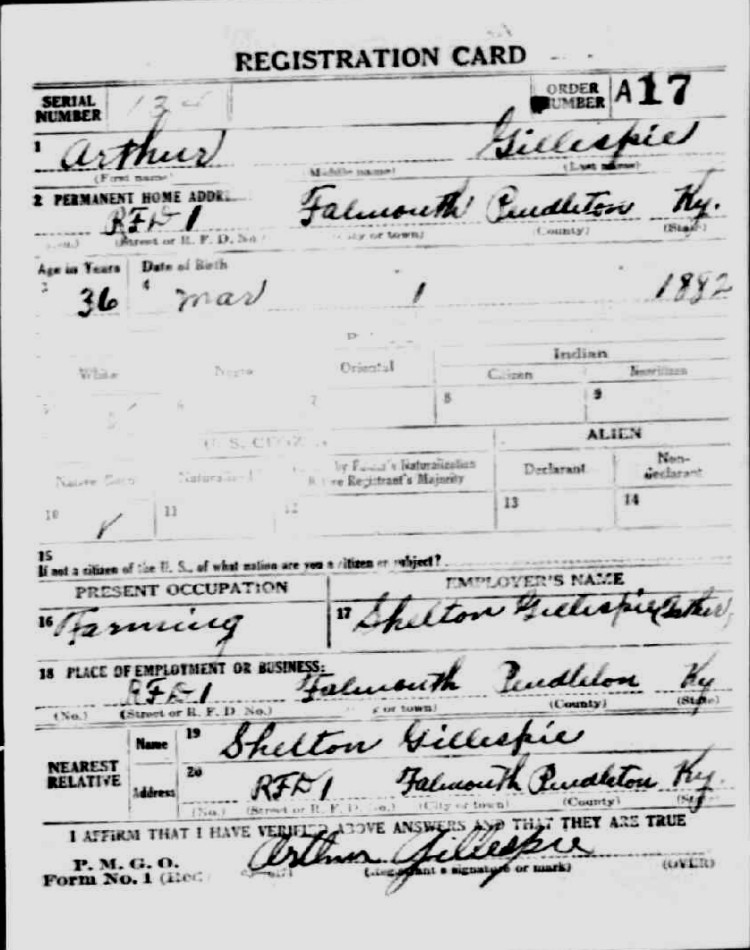 REGISTRATION CARD
SERIAL NUMBER ORDER NUMBER A17
1 Arthur Gillespie
(First name) (Middle name) (Last name)
2 PERMANENT HOME ADDR
RFD 1 Falmouth Pendleton Ky.
(Street or R. F. D. No.) (City or town) (County) (State)
Age in Years Date of Birth
3 36 4 Mar 1 1882
White Negro Oriental Indian
Citizen Noncitizen
5 6 7 8 9
U. S. CITIZEN ALIEN
Native Born Naturalized by Father's Naturalization Before Registrant's Majority Declarant Non-declarant
10 ✓ 11 12 13 14
15
If not a citizen of the U. S., of what nation are you a citizen or subject?
PRESENT OCCUPATION EMPLOYER'S NAME
16 Farming 17 Shelton Gillespie
18 PLACE OF EMPLOYMENT OR BUSINESS:
RFD 1 Falmouth Pendleton Ky
(No.) (Street or R. F. D. No.) (City or town) (County) (State)
NEAREST RELATIVE Name 19 Shelton Gillespie
Address 20 RFD 1 Falmouth Pendleton Ky.
(No.) (Street or R. F. D. No.) (City or town) (County) (State)
I AFFIRM THAT I HAVE VERIFIED ABOVE ANSWERS AND THAT THEY ARE TRUE
P. M. G. O.
Form No. 1 (Red) Arthur Gillespie
(Registrant's signature or mark) (OVER)